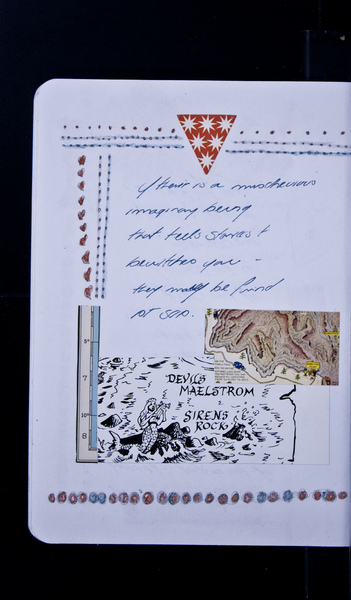 If there is a mischevious
imaginary being
that tells stories &
bewitches you -
they may be found
at sea.
DEVILS
MAELSTROM
SIRENS
ROCK
7
10
8